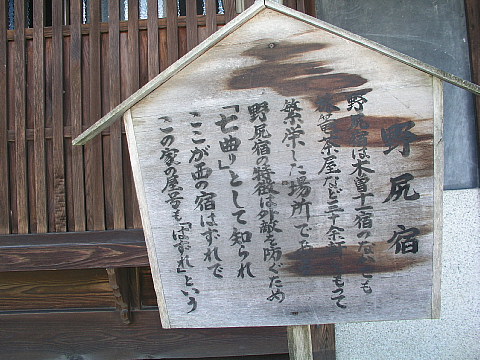 野尻宿
野尻宿は木曽十一宿のなかでも
旅籠茶屋など三十余軒もって
繁栄した場所である
野尻宿の特徴は外敵を防ぐため
「七曲り」として知られ
ここが西の宿はずれで
この家の屋号も「はずれ」という